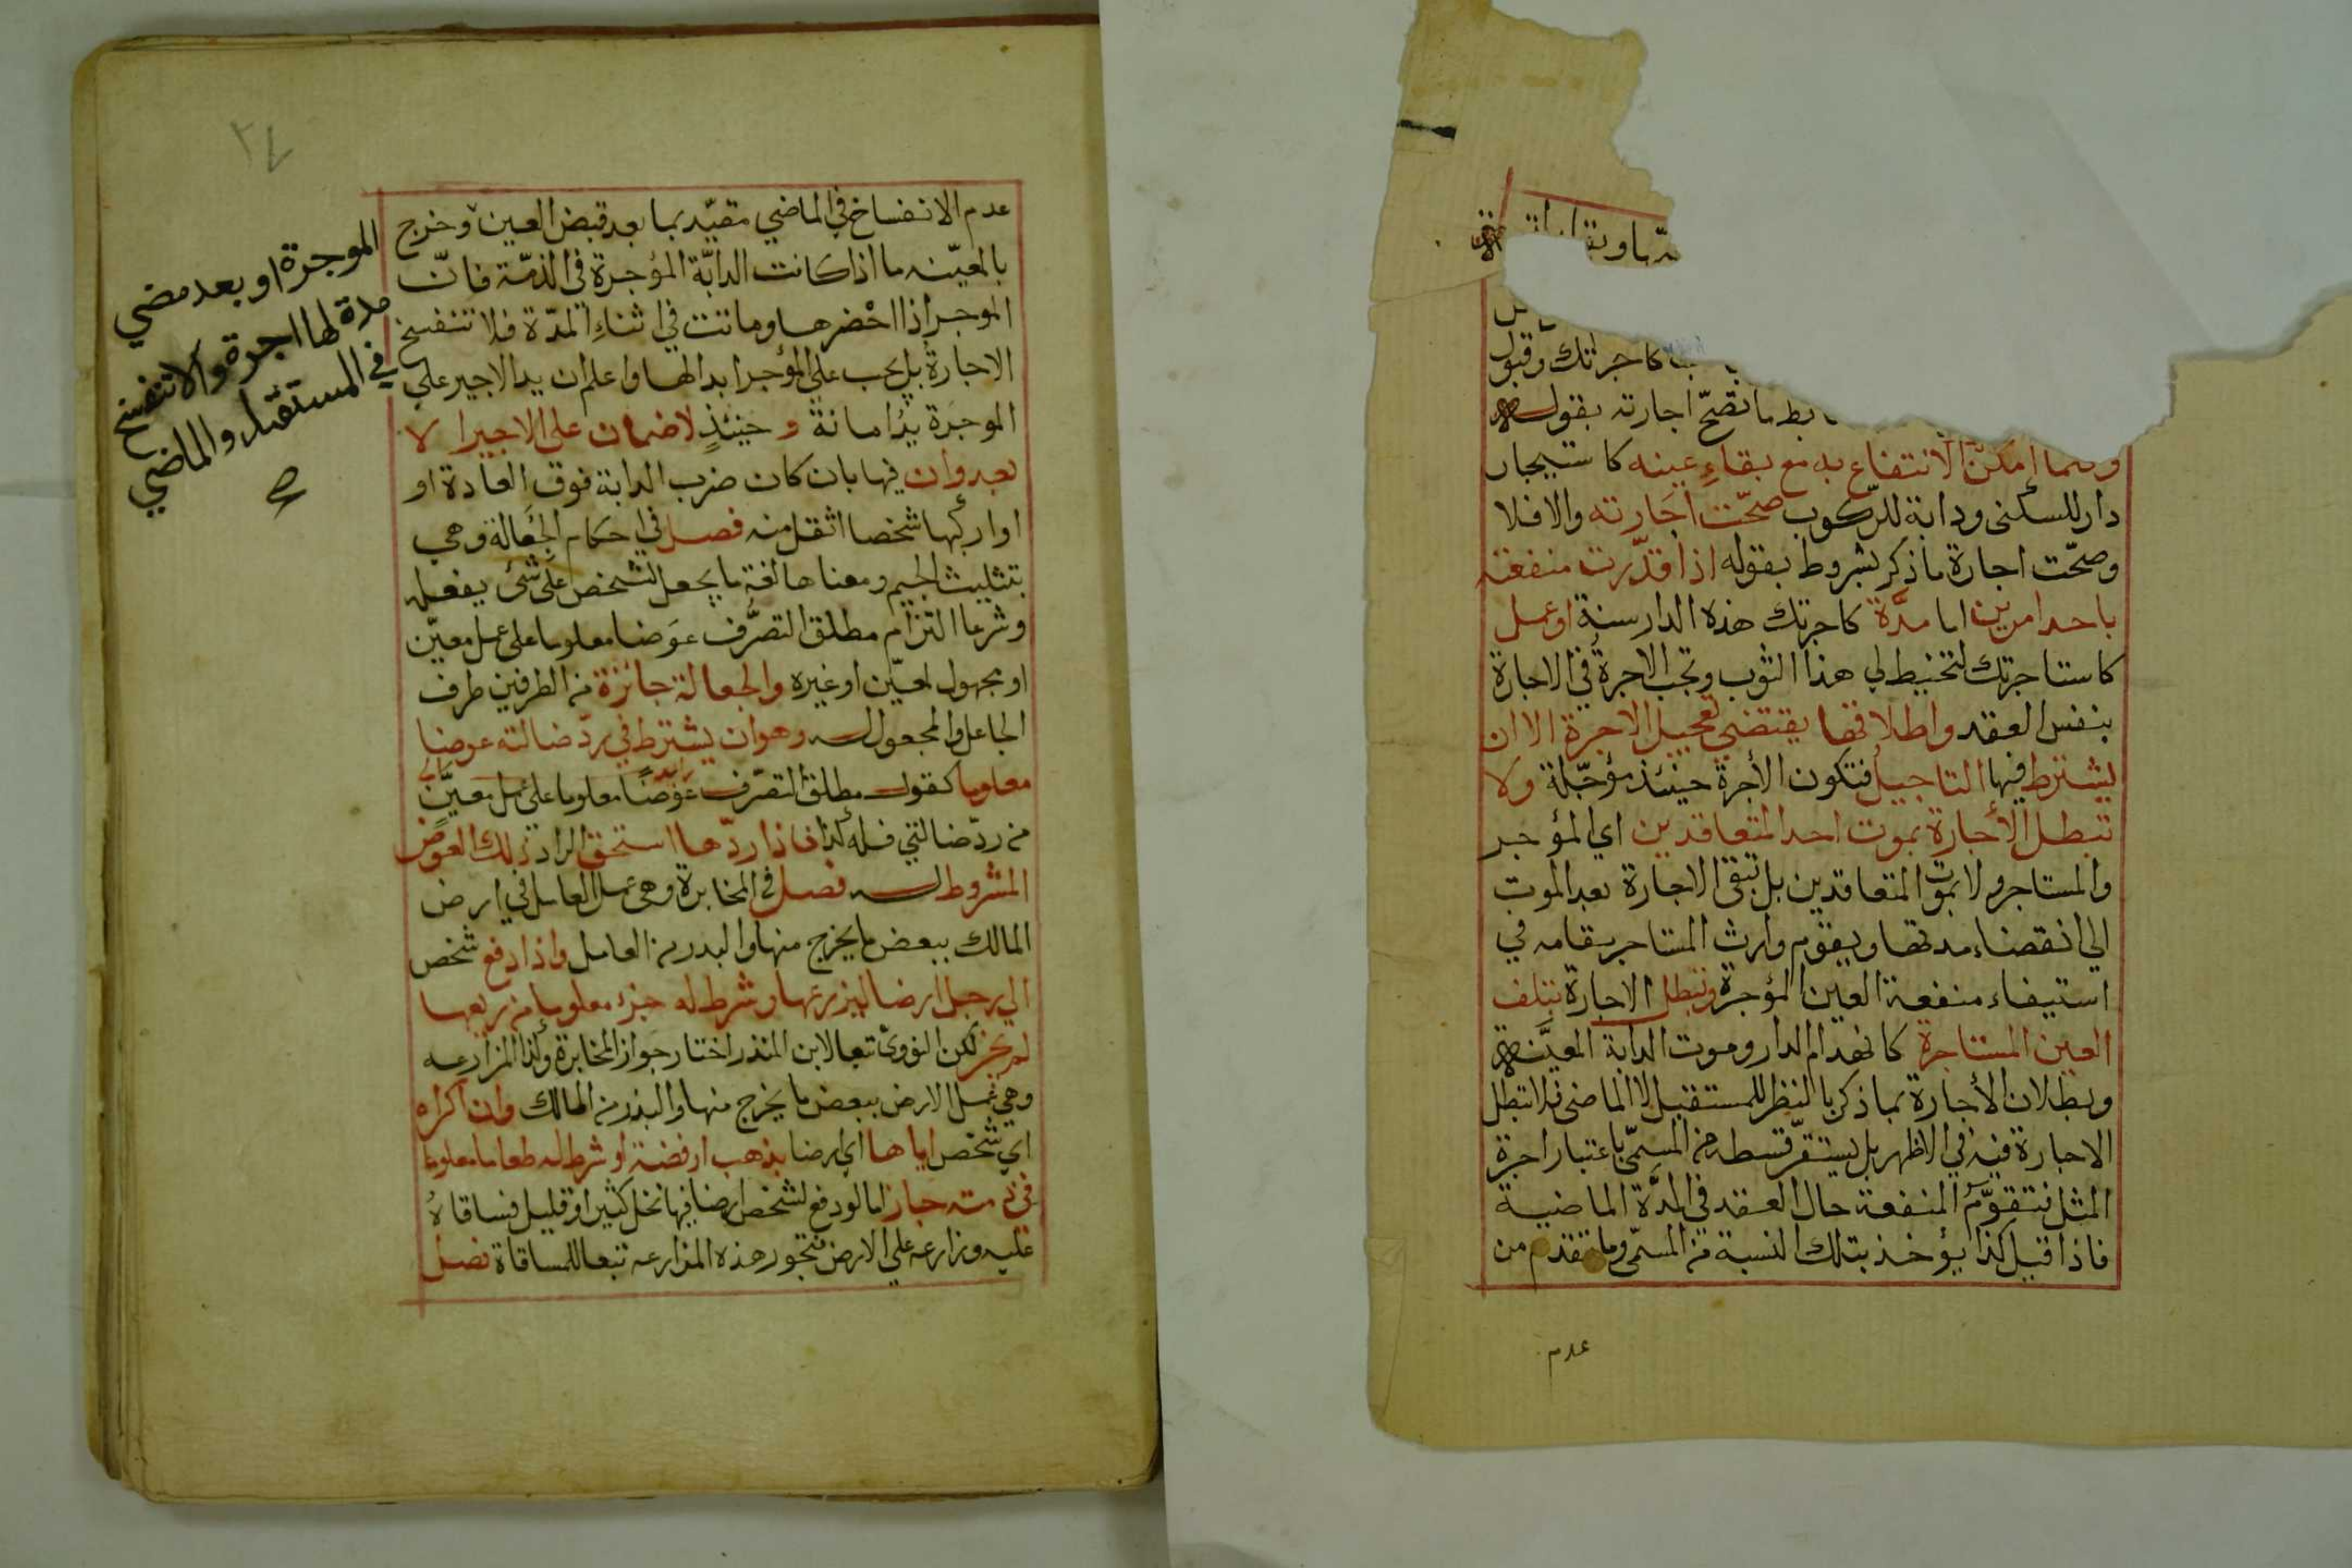 كاجرتك وقبول
ما تصحّ اجارته بقوله
وكلما امكن الانتفاع به مع بقاءِ عينه كاستيجار
دار للسكنى ودابة للركوب صحّت اجارته والا فلا
وصحّت اجارة ما ذكر بشروط بقوله اذا قدّرت منفعته
باحد امرين اما مدّة كاجرتك هذه الدار سنة او عمل
كاستاجرتك لتخيط لي هذا الثوب وتجب الاجرة في الاجارة
بنفس العقد واطلاقها يقتضي تعجيل الاجرة الا ان
يشترط فيها التاجيل فتكون الأجرة حينئذ مؤجّلة ولا
تبطل الأجارة بموت احد المتعاقدين اي المؤجر
والمستاجر ولا بموت المتعاقدين بل تبقى الاجارة بعد الموت
الي انقضاء مدتها ويقوم وارث المستاجر مقامه في
استيفاء منفعة العين المؤجرة وتبطل الاجارة بتلف
العين المستاجرة كانهدام الدار وموت الدابة المعيّنة
وبطلان الأجارة بما ذكر بالنظر للمستقبل لا الماضي فلا تبطل
الاجارة فيه في الاظهر بل يستقرّ قسطه من المسمّي باعتبار اجرة
المثل فتقوّم المنفعة حال العقد في المدّة الماضية
فاذا قيل كذا يؤخذ بتلك النسبة من المسمّى وما تقدم من
عدم
عدم الانفساخ في الماضي مقيّد بما بعد قبض العين وخرج
بالمعيّنه ما اذا كانت الدابّة المؤجرة في الذمّة فانّ
الموجر اذا احْضرها وماتت في اثناءِ المدّة فلا تنفسخ
الاجارة بل يجب علي المؤجر ابدالها واعلم ان يد الاجير علي
الموجرة يدُ امانة وحينئذٍ لا ضمان على الاجير الا
بعدوان فيها بان كان ضرب الدابة فوق العادة او
اواركبها شخصا اثقل منه فصل في احكام الجُعَالة وهي
بتثليث الجيم ومعناها لغة ما يجعل لشخص على شئ يفعله
وشرعا التزام مطلق التصرُّف عوَضا معلوما على عمل معيّن
او مجهول لمعيّن او غيره والجعالة جائزة من الطرفين طرف
الجاعل والمجعول له وهو ان يشترط في ردّ ضالته عوضا
معلوما كقول مطلق التصرّف عوَضًا معلوما على عمل معيّن
من ردّ ضالتي فله كذا فاذا ردّها استحق الراد ذلك العوض
المشروط له فصل في المخابرة وهي عمل العامل في ارض
المالك ببعض ما يخرج منها والبدر من العامل واذا دفع شخص
الي رجل ارضا ليزرعها وشرط له جزء معلوما من ريعها
لم يجز لكن النووىّ تبعا لابن المنذر اختار جواز المخابرة وكذا المزارعه
وهي عمل الارض ببعض ما يخرج منها والبذر من المالك وان اكراه
اي شخص اياها اي ارضا بذهب ارفضة او شرط له طعاما معلوما
في ذمته جاز اما لو دفع لشخص ارضا فيها نخل كثير او قليل فساقاهُ
عليه وزارعه علي الارض فتجوز هذه المزارعه تبعا للمساقاة فصل
الموجرة او بعد مضي
مدة لها اجرة والا تنفسخ
في المستقبل والماضي